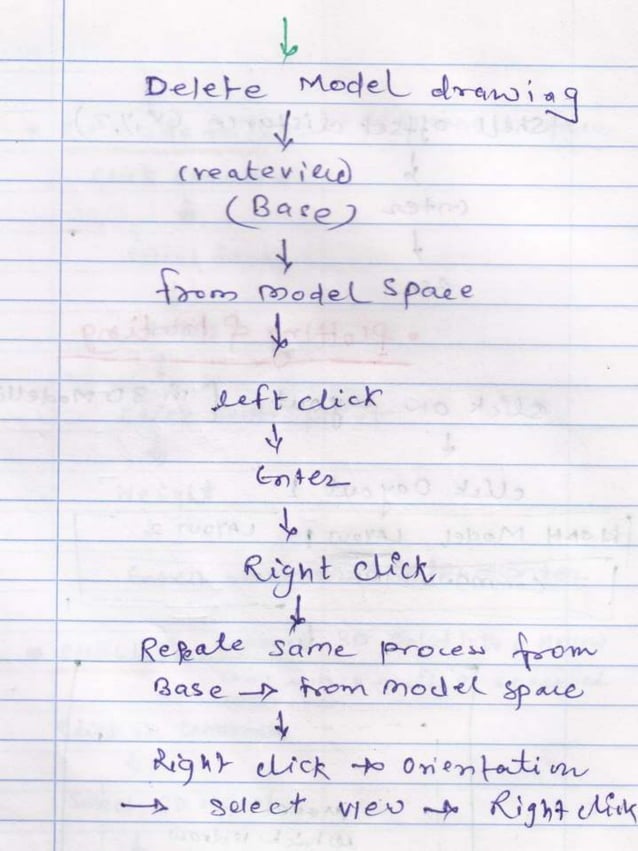 ↓
Delete Model drawing
↓
createview
(Base)
↓
from model space
↓
left click
↓
Enter
↓
Right click
↓
Repate same process from
Base → from model space
↓
Right click → Orientation
→ select view → Right click